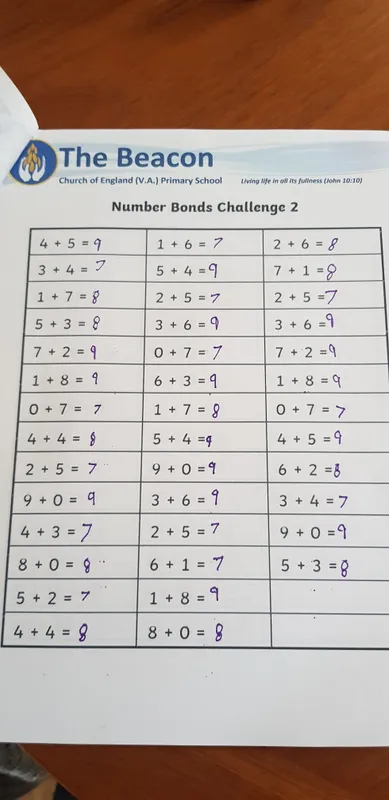 The Beacon
Church of England (V.A.) Primary School Living life in all its fullness (John 10:10)
Number Bonds Challenge 2
4 + 5 = 9 1 + 6 = 7 2 + 6 = 8
3 + 4 = 7 5 + 4 = 9 7 + 1 = 8
1 + 7 = 8 2 + 5 = 7 2 + 5 = 7
5 + 3 = 8 3 + 6 = 9 3 + 6 = 9
7 + 2 = 9 0 + 7 = 7 7 + 2 = 9
1 + 8 = 9 6 + 3 = 9 1 + 8 = 9
0 + 7 = 7 1 + 7 = 8 0 + 7 = 7
4 + 4 = 8 5 + 4 = 9 4 + 5 = 9
2 + 5 = 7 9 + 0 = 9 6 + 2 = 8
9 + 0 = 9 3 + 6 = 9 3 + 4 = 7
4 + 3 = 7 2 + 5 = 7 9 + 0 = 9
8 + 0 = 8 6 + 1 = 7 5 + 3 = 8
5 + 2 = 7 1 + 8 = 9
4 + 4 = 8 8 + 0 = 8